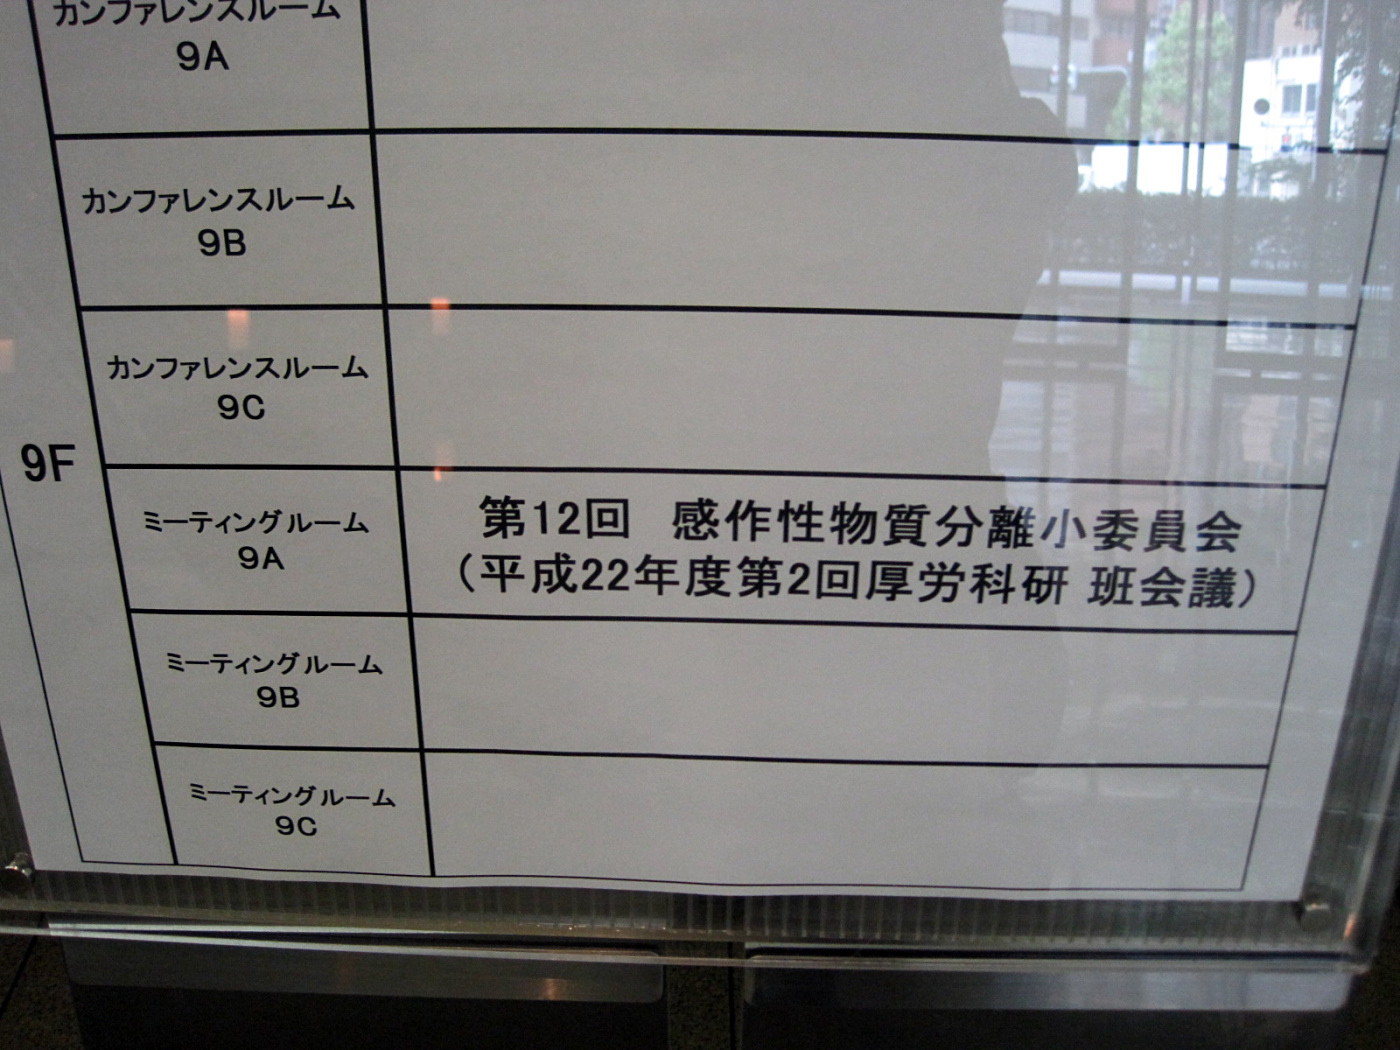 カンファレンスルーム
9A
カンファレンスルーム
9B
カンファレンスルーム
9C
9F
ミーティングルーム
9A
第12回 感作性物質分離小委員会
(平成22年度第2回厚労科研 班会議)
ミーティングルーム
9B
ミーティングルーム
9C